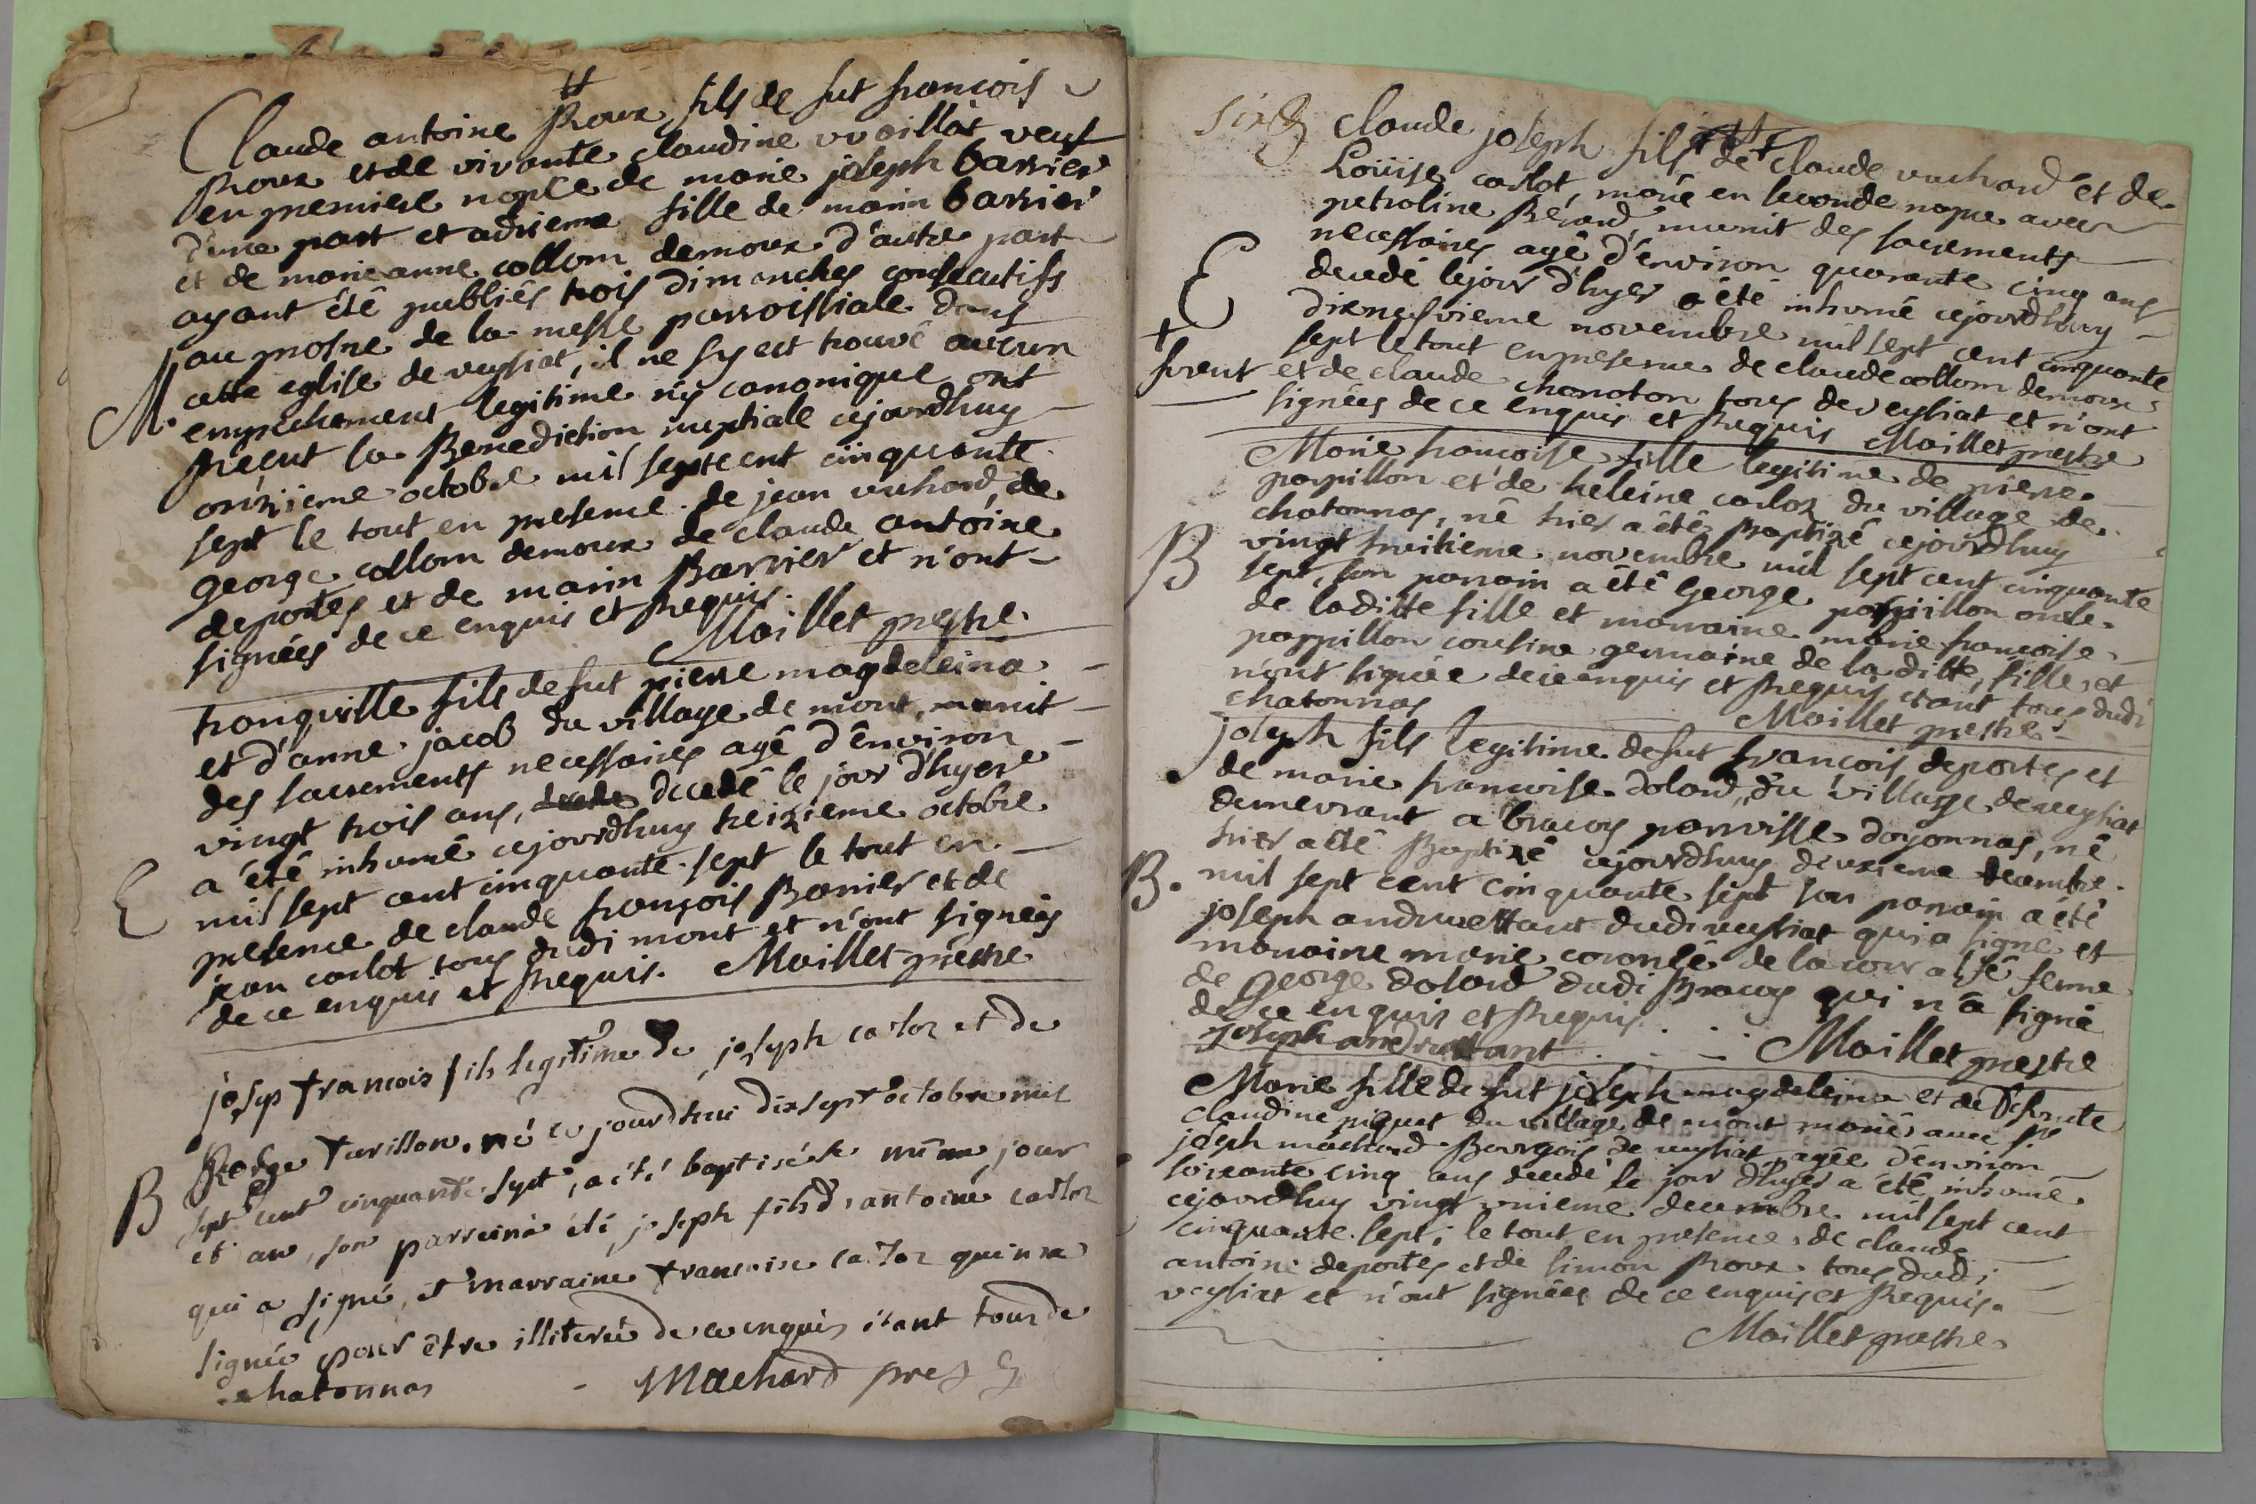 Claude antoine Roux fils de fut françois
Roux et de vivante claudine vuaillat veuf
en premiere nopce de marie joseph barrier
d'une part et adrienne fille de marin barrier
et de marie anne collom demoux d'autre part
ayant été publiés trois dimanches consecutifs
au prosne de la messe parroissiale dans
M. cette eglise de veysiat, il ne s'y est trouvé aucun
empechement legitime n'y canonique ont
Reçut la Benediction nuptiale cejourdhuy
onzieme octobre mil septcent cinquante
sept le tout en presence de jean vuchard, de
george collom demoux de claude antoine
deportes et de marin Barrier et n'ont
signées de ce enquis et Requis.
Maillet prestre
tranquille fils de fut pierre magdeleina
et d'anne jacob du village de mont, munit
des sacrements necessaires agé d'environ
vingt trois ans, decedé le jour d'hyer
a été inhumé cejourdhuy treizieme octobre
E mil sept cent cinquante sept le tout en
presence de claude françois Barrier et de
jean carlot tous dudi mont et n'ont signées
de ce enquis et Requis. Maillet prestre
josep francois fils legitime de joseph carloz et de
turillon. né ce jourdhui dix sept octobre mil
B sept cent cinquante sept, a été baptisé le même jour
et an, son parrein a été, joseph fils d'antoine carloz
qui a signé, et marraine francoise carloz qui n'a
signée pour être illiterée de ce enquis étant tous de
chatonnas - Machard pre
claude joseph fils de claude vuchard et de
Loüise carlot, marié en seconde nopce avec
petroline Berard, munit des sacrements
necessaires agé d'environ quarante cinq ans
E decedé le jour d'hyer a été inhumé cejourdhuy
dixneufvieme novembre mil sept cent cinquante
+ sept le tout en presence de claude collom demoux
furent et de claude chanoton tous de veysiat et n'ont
signées de ce enquis et Requis Maillet prestre
Marie francoise fille legitime de pierre
pappillon et de heleine carloz du village de
chatonnas, né hier a étés Baptizé cejourdhuy
B vingt huitieme novembre mil sept cent cinquante
sept, son parrain a été George pappillon oncle
de laditte fille et marraine marie francoise
pappillon cousine germaine de laditte, fille, et
n'ont signée de ce enquis et Requis etant tous dudi
chatonnas Maillet prestre
joseph fils legitime de fut francois deportes et
de marie francoise dolard, du village de veysiat
demeurant a bracoy parroisse doyonnas, né
hier a été Baptizé cejourdhuy deuxieme decembre
B. mil sept cent cinquante sept son parrain a été
joseph andruettant dudi veysiat qui a signé et
marraine marie coronée de la cour alsé femme
de George dolard dudi Bracoy qui n'a signé
de ce enquis et Requis.
joseph andruettant Maillet prestre
Marie fille de fut joseph magdeleina et de deffunte
claudine piquet du village de mont marié avec sr
joseph machard Bourgois de veysiat agée d'environ
soixante cinq ans decedé le jour d'hyer a été inhumé
cejourdhuy vingt unieme decembre mil sept cent
cinquante sept; le tout en presence de claude
antoine deportes et de simon Roux tous dudi
veysiat et n'ont signées de ce enquis et Requis.
Maillet prestre